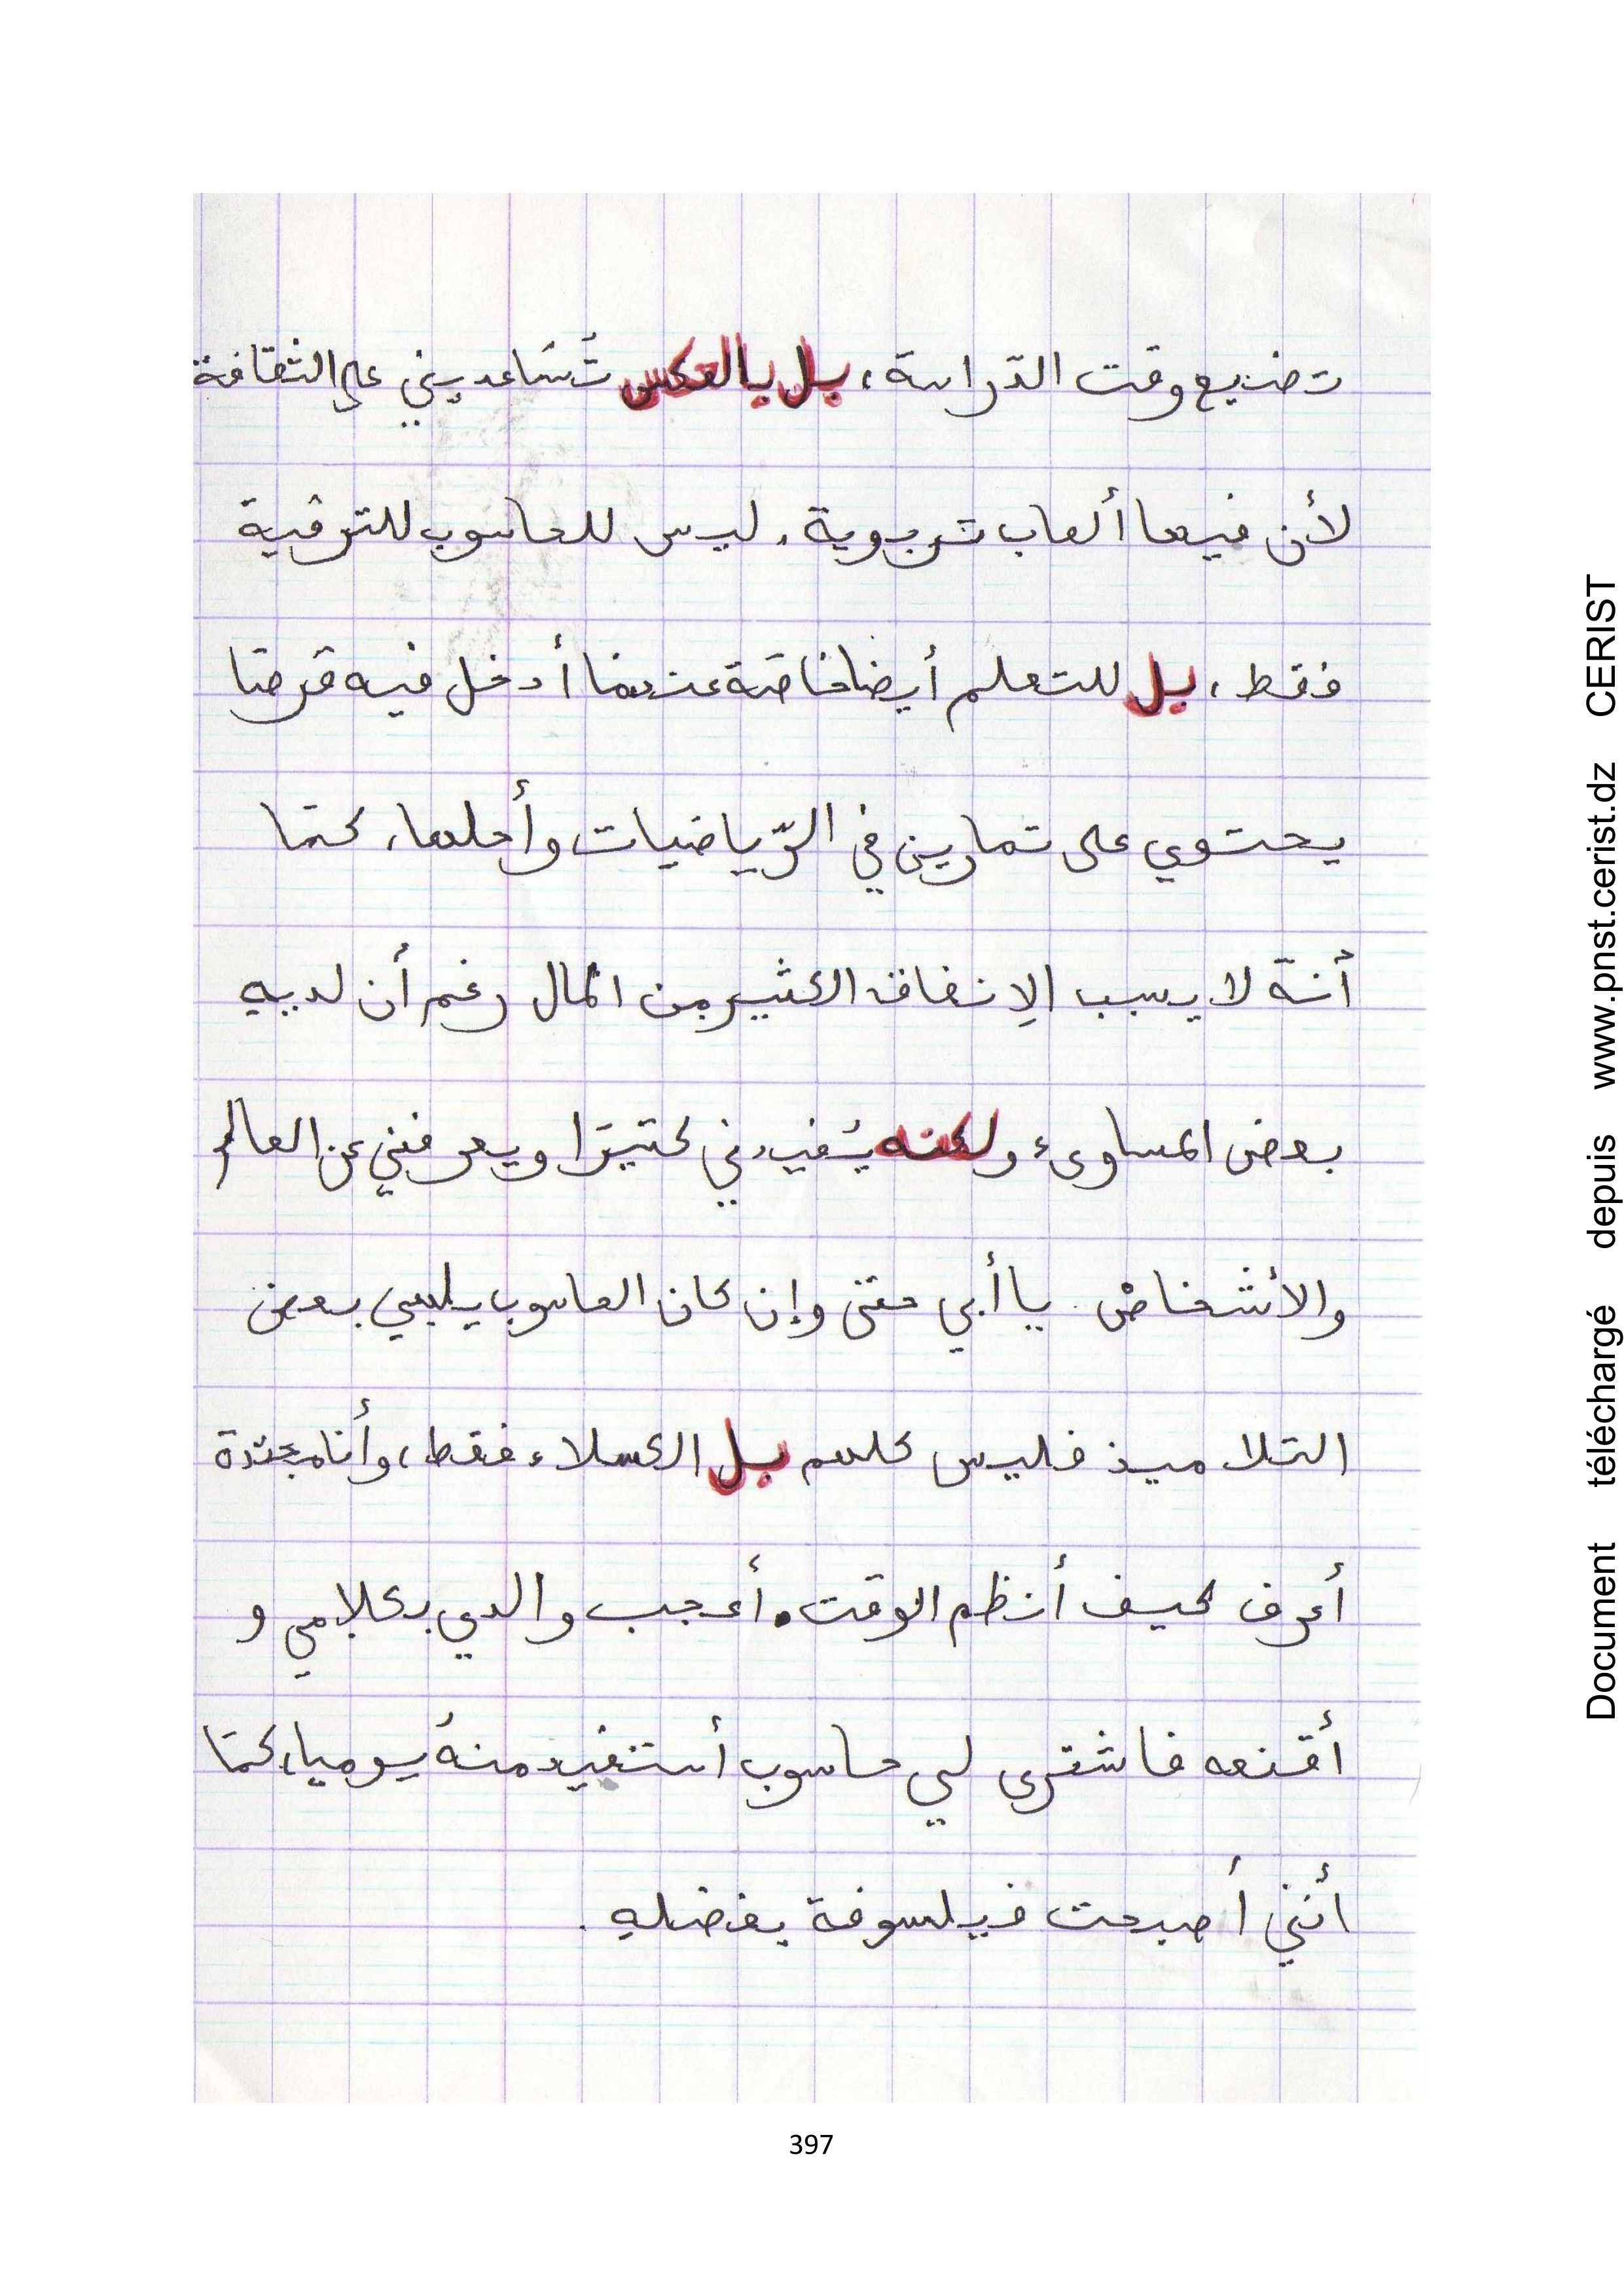 تضيع وقت الدّراسة، بل بالعكس تُسَاعديني على الثقافة
لأن فيها ألعاب تربوية. ليس للحاسوب للترفية
فقط، بل للتعلم أيضا خاصّة عندما أدخل فيه قرصا
يحتوي على تمارين في الرّياضيات وأحلها، كما
أنّه لا يسبب الإنفاق الكثير من المال رغم أن لديهِ
بعض المساوىء ولكنه يُفيدني كثيرًا ويعرفني عن العالم
والأشخاص. يا أبي حتى وإن كان الحاسوب يلهي بعض
التلاميذ فليس كلهم بل الكسلاء فقط، وأنا مجتدة
أعرف كيف أنظم الوقت. أعجب والدي بكلامي و
أقنعه فاشترى لي حاسوب أستفيد منهُ يوميا، كما
أنني أصبحت فيلسوفة بفضلهِ.
397
Document téléchargé depuis www.pnst.cerist.dz CERIST